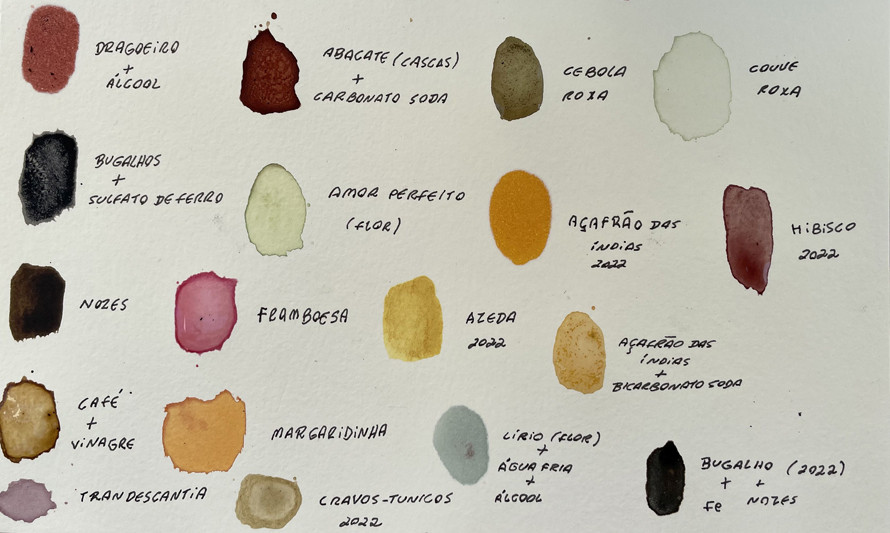 DRAGOEIRO
+
ÁLCOOL
ABACATE (CASCAS)
+
CARBONATO SODA
CEBOLA
ROXA
COUVE
ROXA
BUGALHOS
+
SULFATO DE FERRO
AMOR PERFEITO
(FLOR)
AÇAFRÃO DAS
ÍNDIAS
2022
HIBISCO
2022
NOZES
FRAMBOESA
AZEDA
2022
AÇAFRÃO DAS
ÍNDIAS
+
BICARBONATO SODA
CAFÉ
+
VINAGRE
MARGARIDINHA
LÍRIO (FLOR)
+
ÁGUA FRIA
+
ÁLCOOL
BUGALHO (2022)
+ +
Fe NOZES
TRANDESCANTIA
CRAVOS-TUNICOS
2022